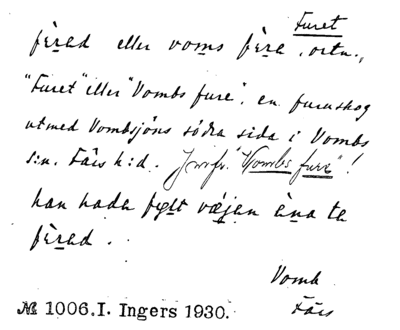 Furet
fèrad eller voms fèra, ortn.,
"Furet" eller "Vombs fure", en furuskog
utmed Vombsjöns södra sida i Vombs
s:n. Färs h:d. Jmfr. "Vombs fure"!
han hade fyllt væjen àna te
fèrad.
Vomb
Färs
№ 1006.I. Ingers 1930.